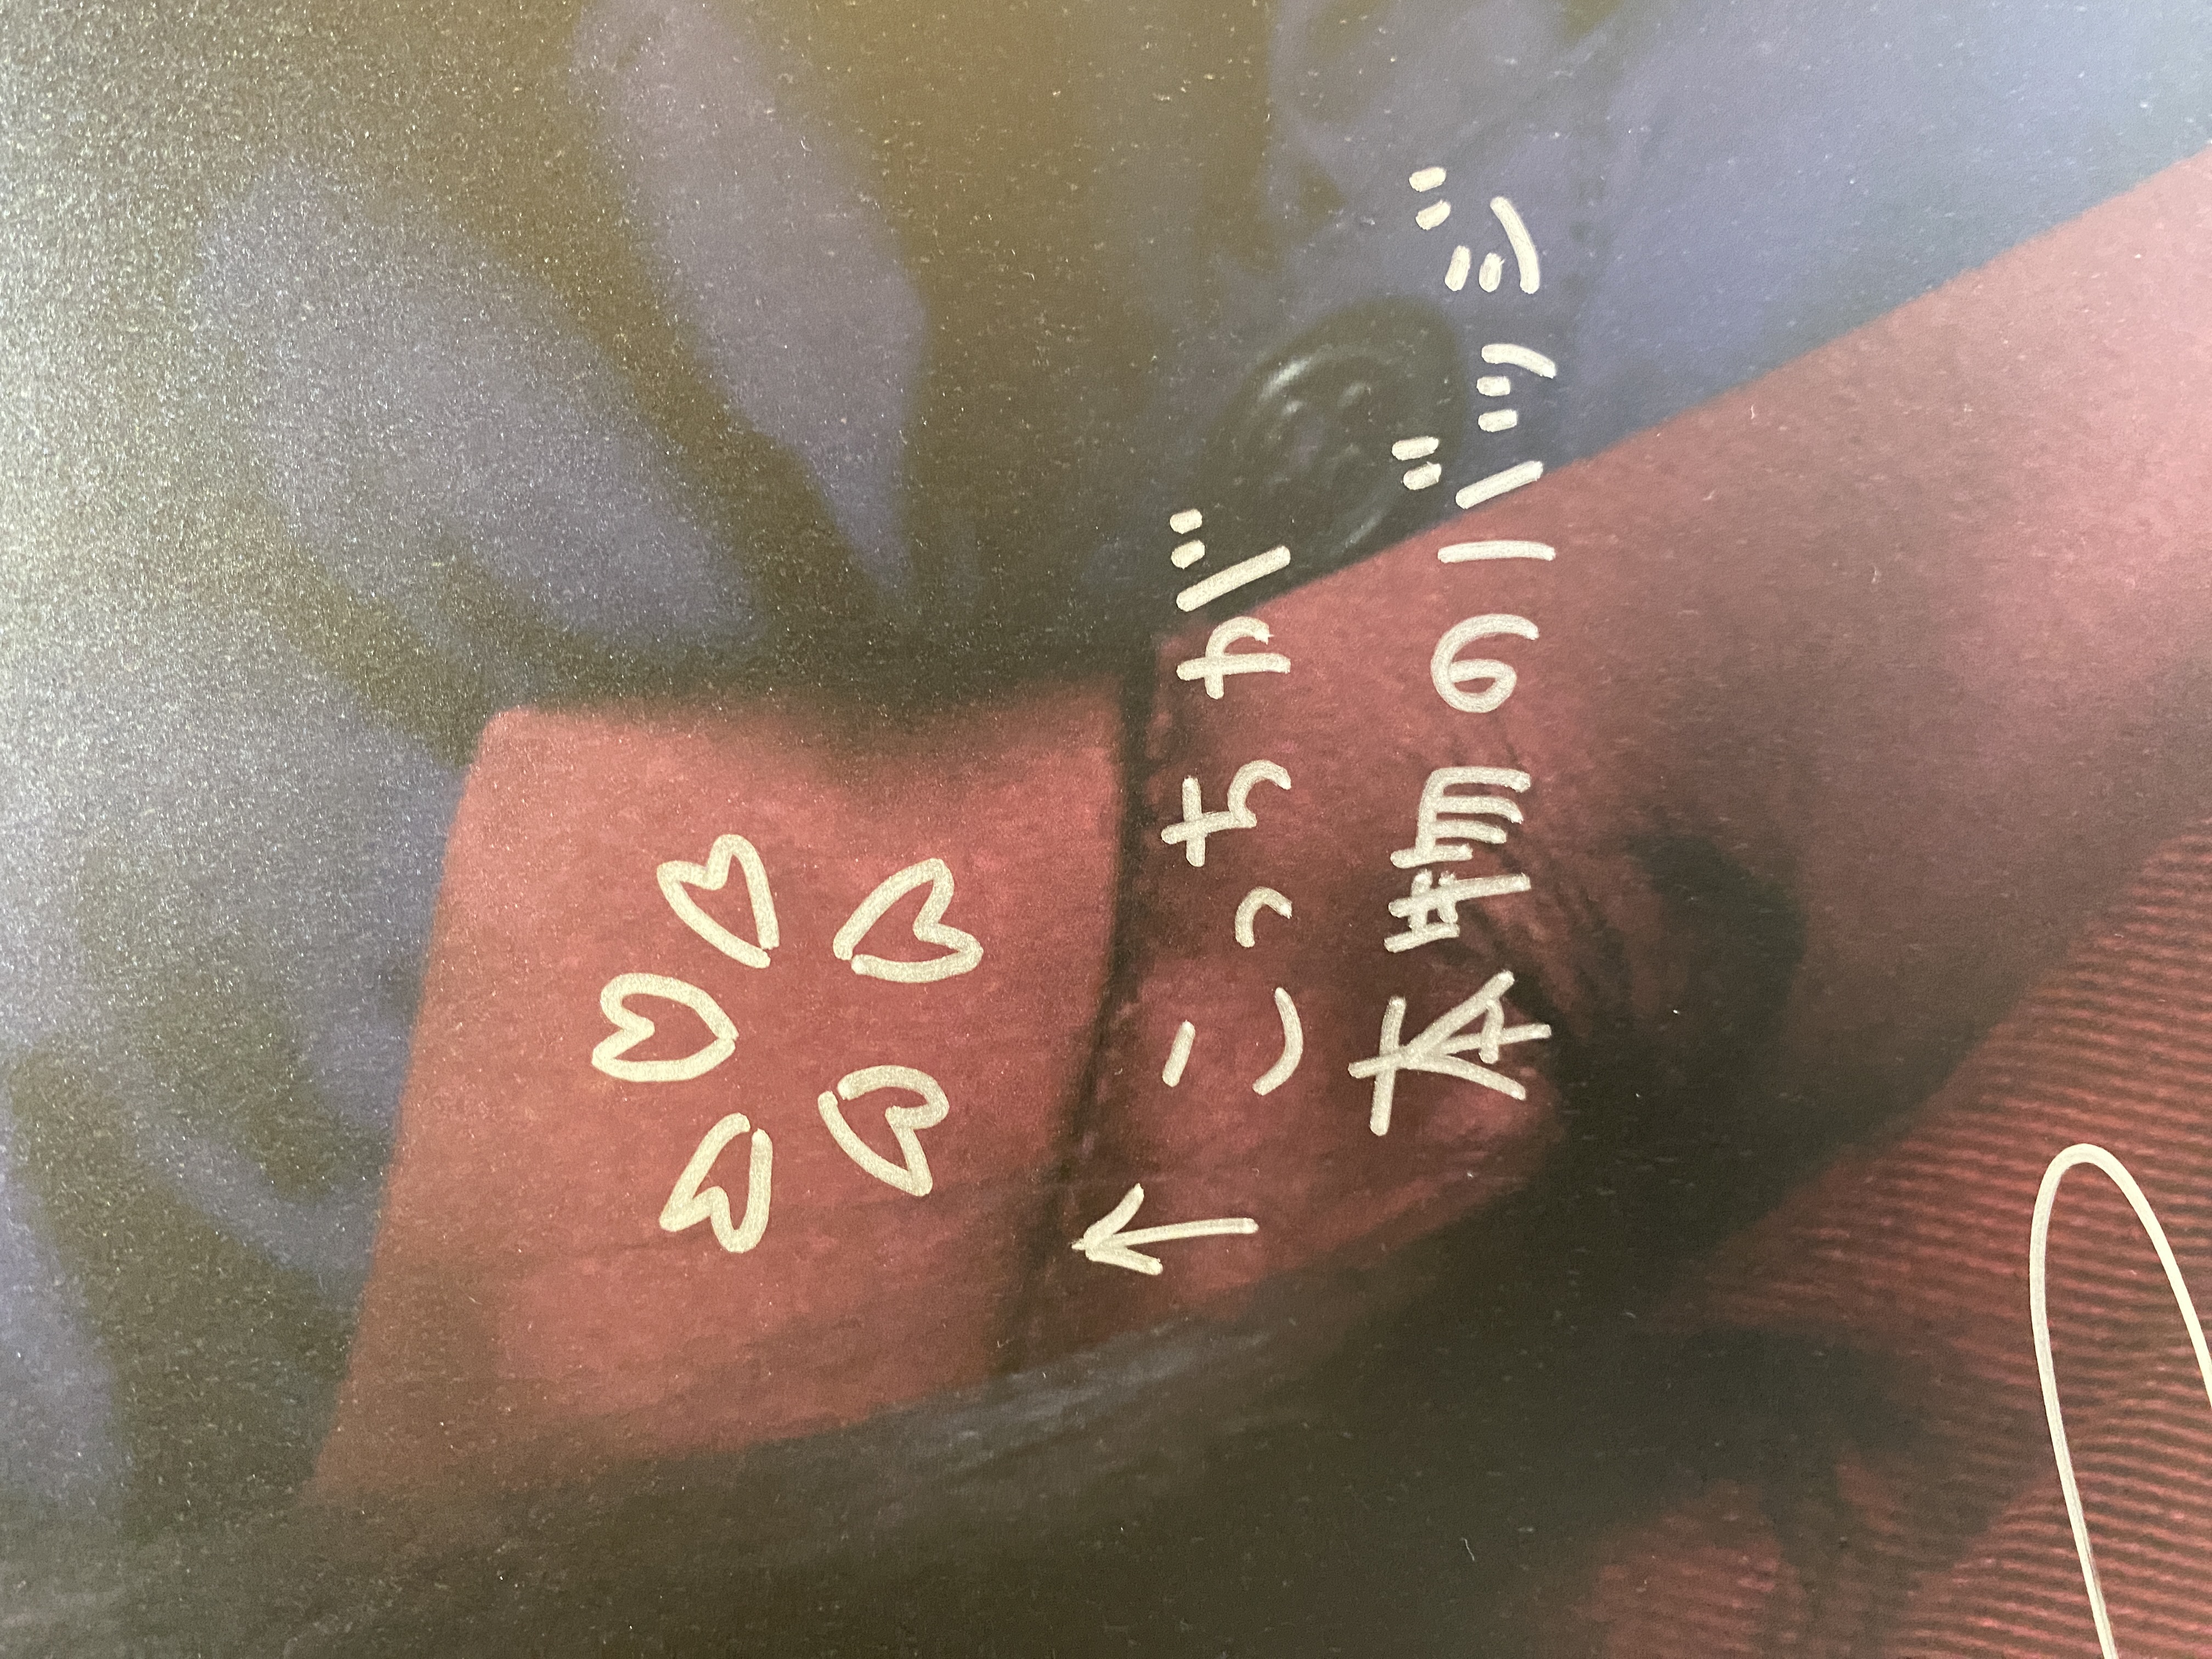 ↑こっちが
本物のバッジ